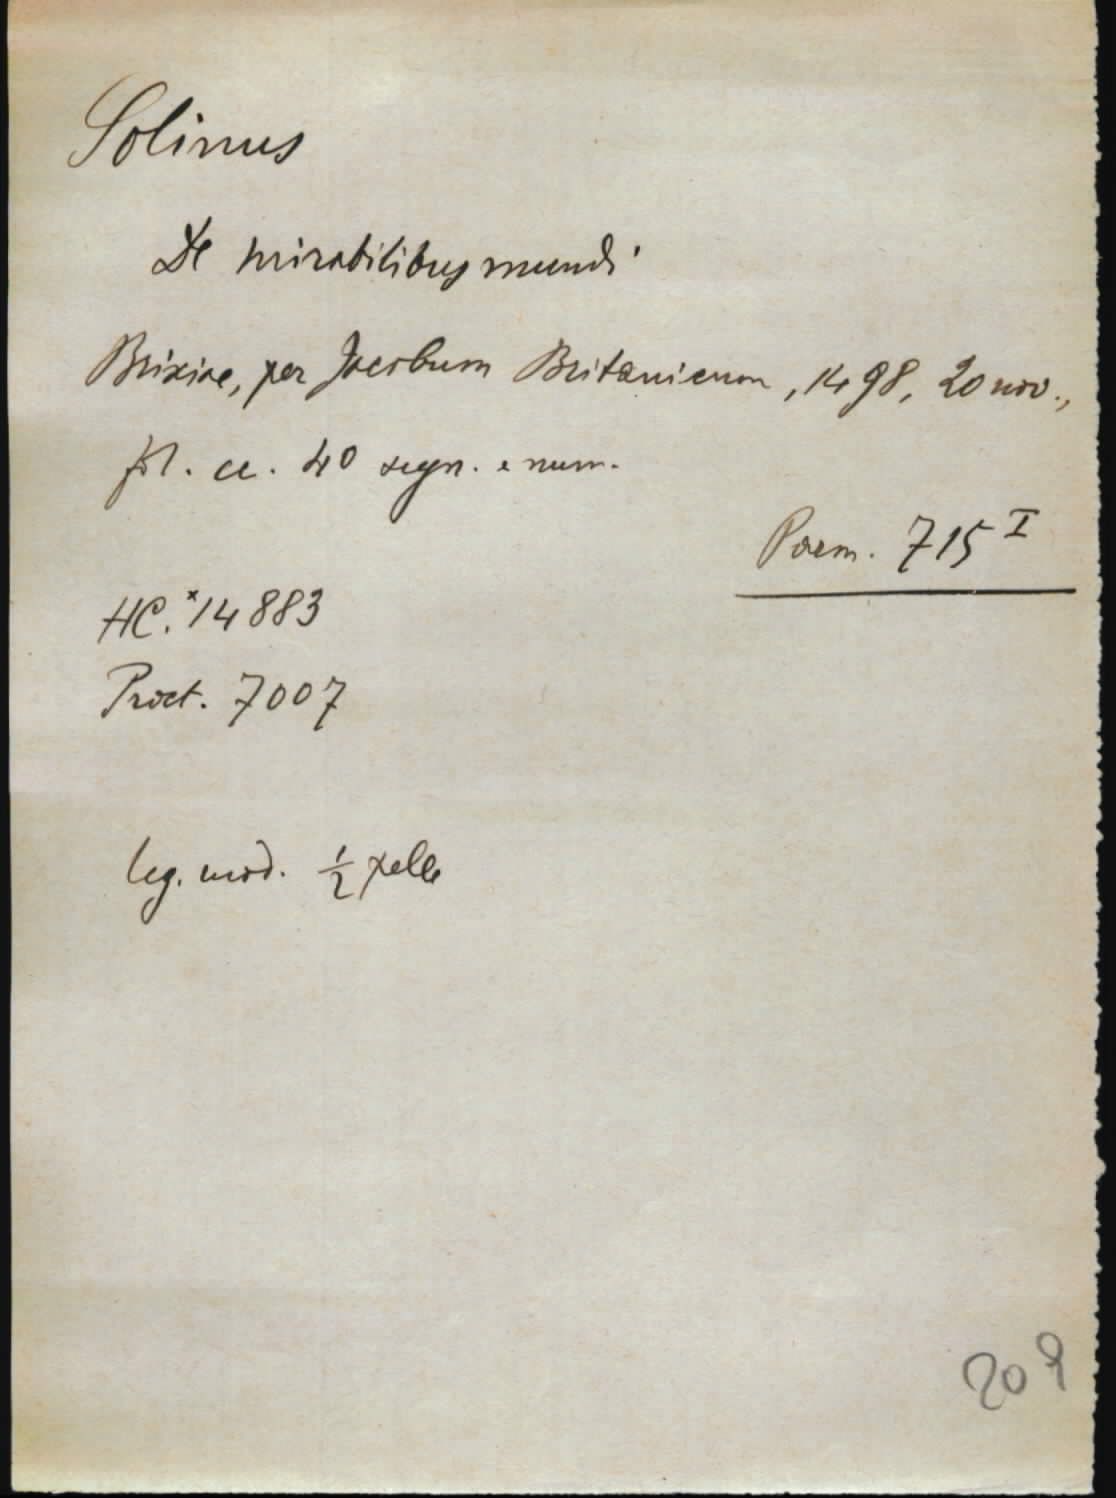 Solinus
De mirabilibus mundi
Brixiae, per Jacobum Britanicum, 1498, 20 nov.,
fol. cc. 40 segn. e num.
Parm. 715 I
HC. *14883
Proct. 7007
leg. mod. 1/2 pelle
209